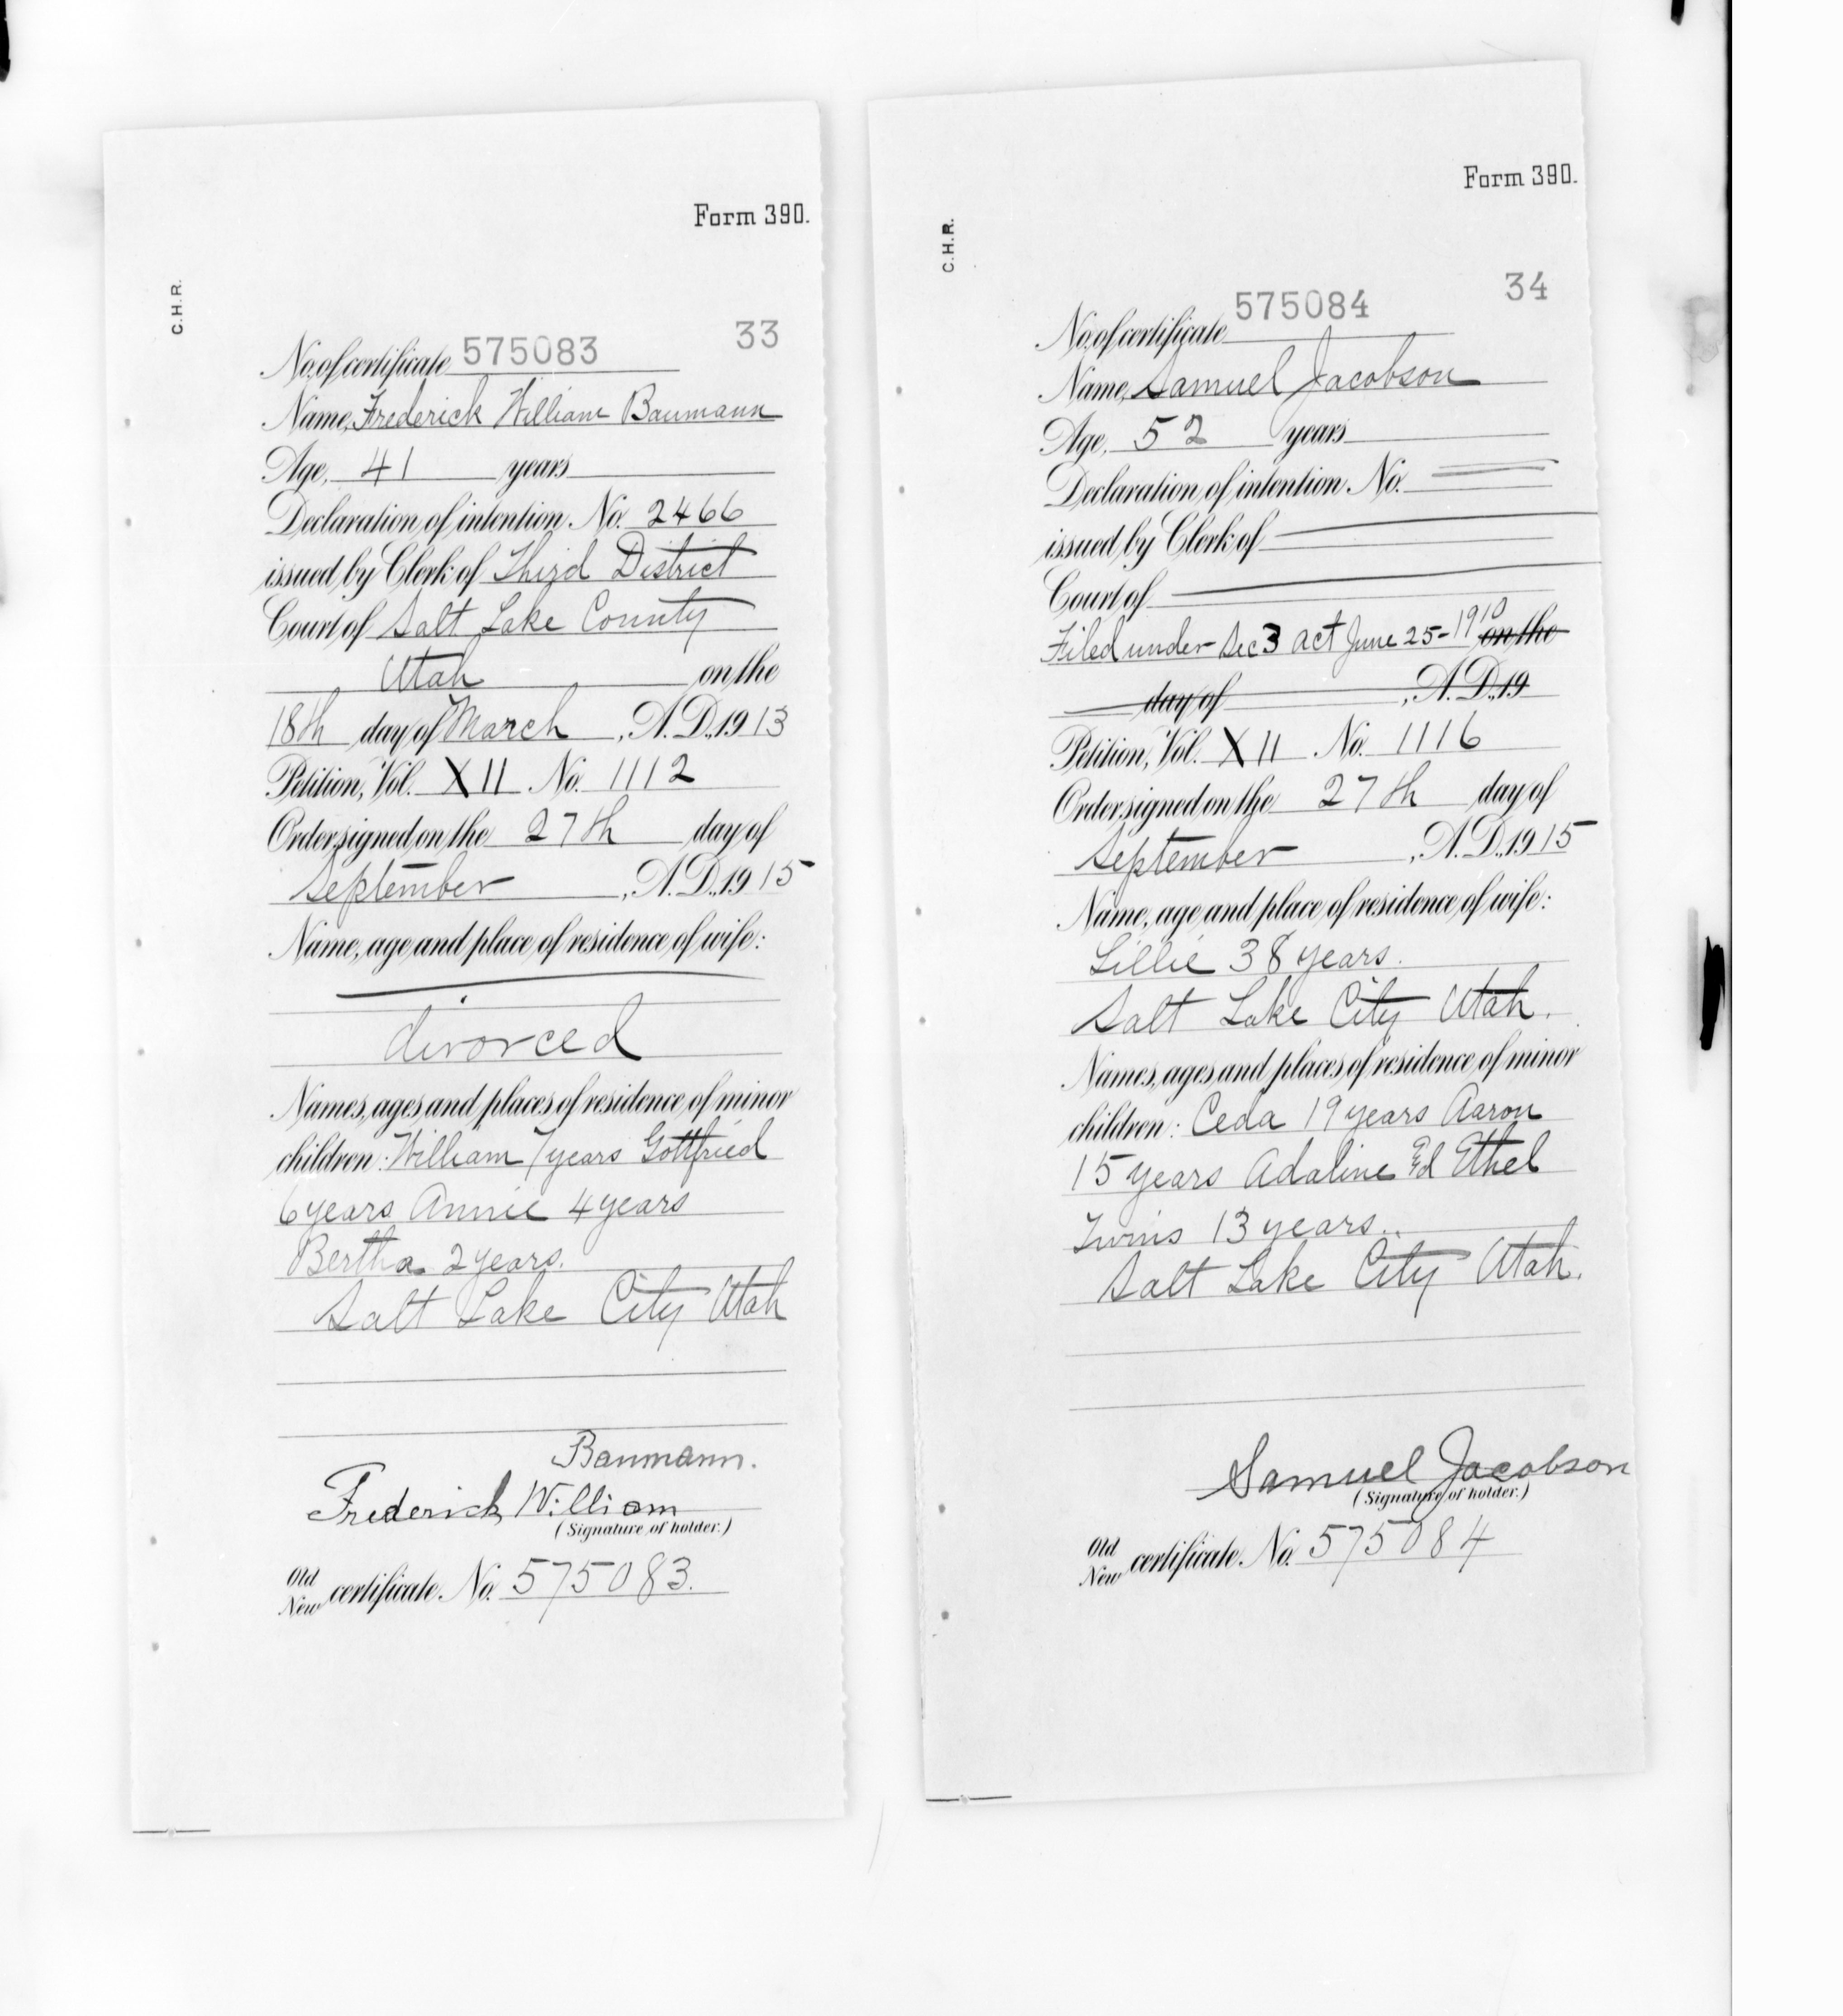 Form 390.
C.H.R.
33
No. of certificate 575083
Name, Frederick William Baumann
Age, 41 years
Declaration of intention No. 2466
issued by Clerk of Third District
Court of Salt Lake County
Utah on the
18th day of March, A.D. 1913
Petition, Vol. XII No. 1112
Order signed on the 27th day of
September, A.D. 1915
Name, age and place of residence of wife:
divorced
Names, ages and places of residence of minor
children: William 7 years Gottfried
6 years Annie 4 years
Bertha 2 years.
Salt Lake City Utah
Baumann.
Frederick William
(Signature of holder.)
Old
New certificate No. 575083.
Form 390.
C.H.R.
34
No. of certificate 575084
Name, Samuel Jacobson
Age, 52 years
Declaration of intention No.
issued by Clerk of
Court of
Filed under Sec 3 act June 25-1910 on the
day of , A.D. 19
Petition, Vol. XII No. 1116
Order signed on the 27th day of
September, A.D. 1915
Name, age and place of residence of wife:
Lillie 38 years.
Salt Lake City Utah.
Names, ages and places of residence of minor
children: Ceda 19 years Aaron
15 years Adaline Ethel
Twins 13 years.
Salt Lake City Utah.
Samuel Jacobson
(Signature of holder.)
Old
New certificate No. 575084